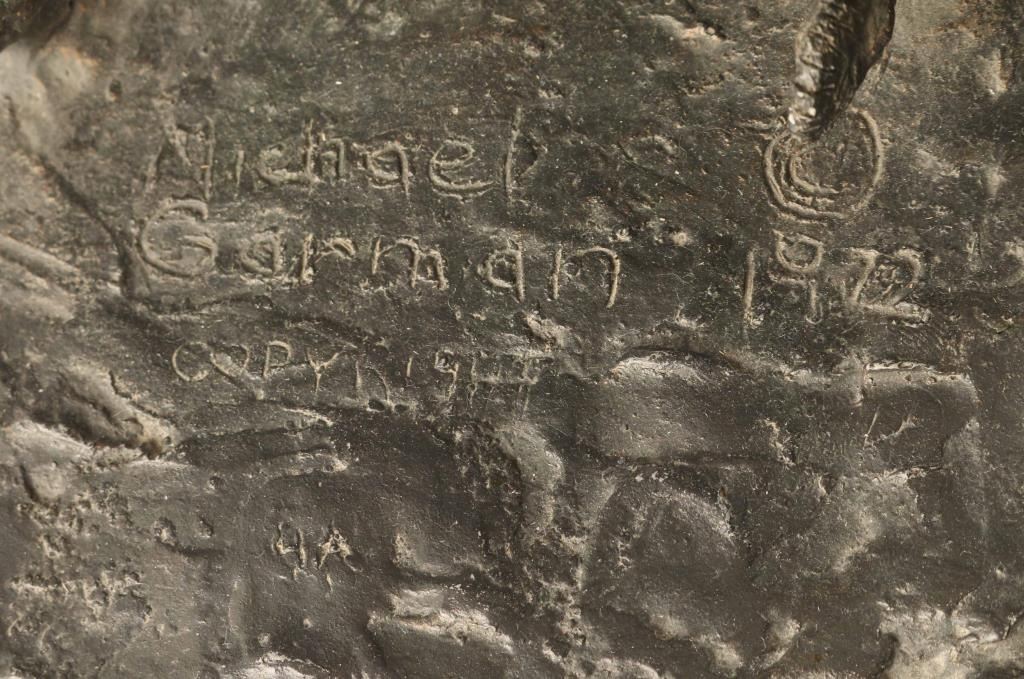 Michael ©
Garman 1972
COPYRIGHT